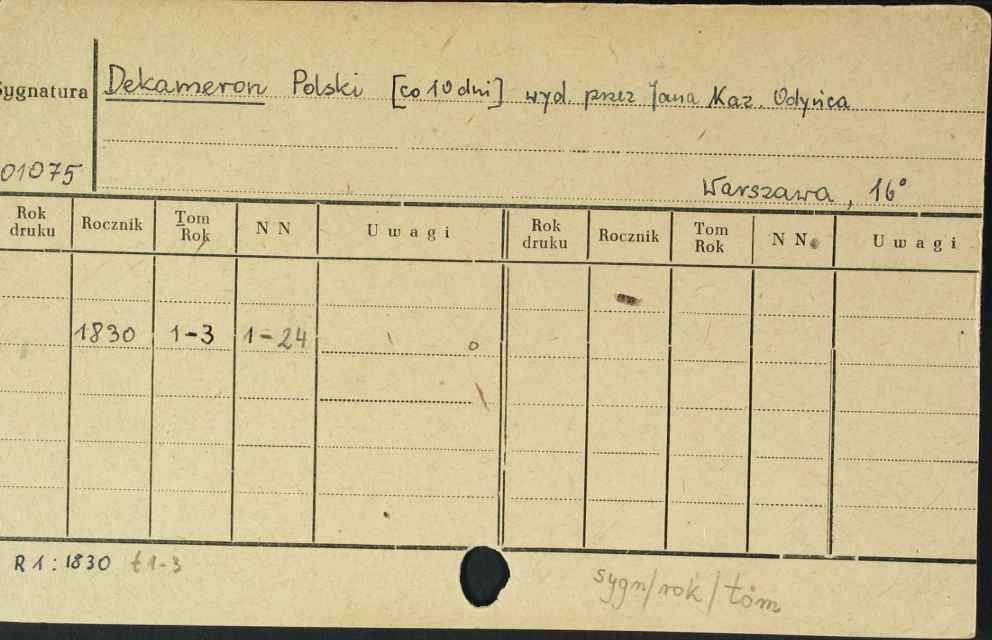 Sygnatura Dekameron Polski [co 10 dni] wyd. przez Jana Kaz. Odyńca
01075
Warszawa, 16°
Rok druku Rocznik Tom Rok N N Uwagi Rok druku Rocznik Tom Rok N N Uwagi
1830 1-3 1-24
R 1 : 1830 t 1-3
sygn/rok/tom